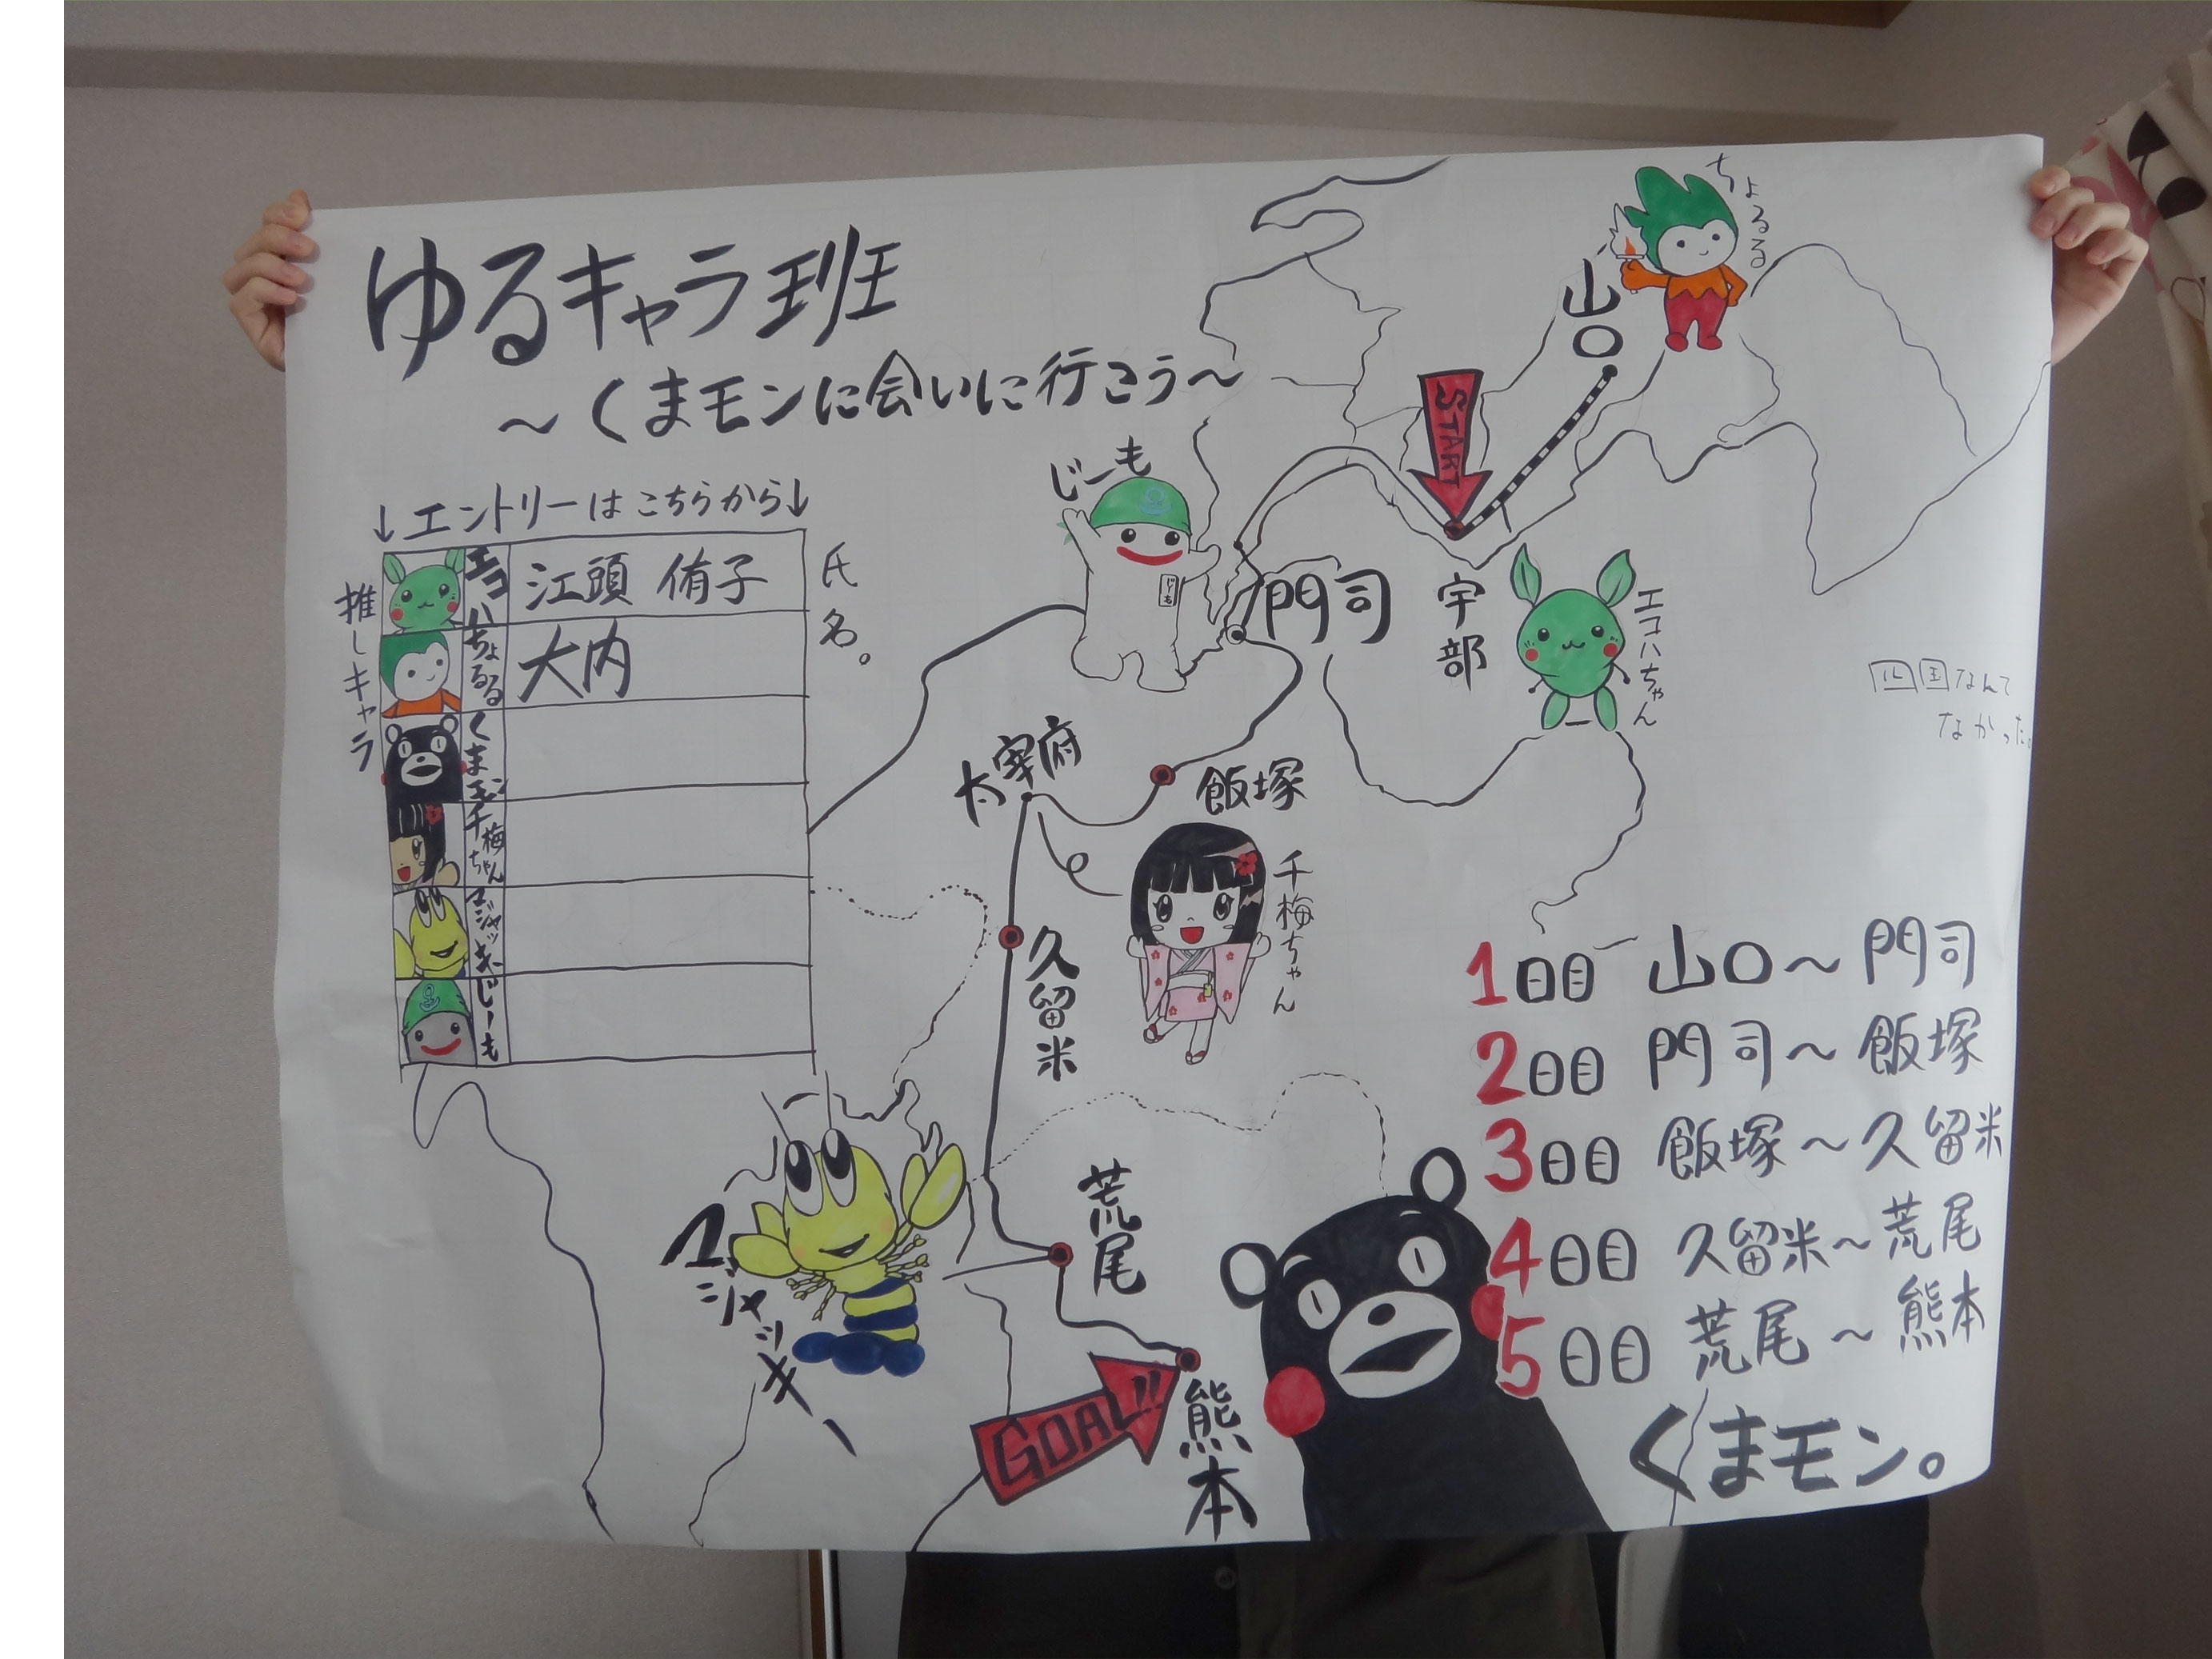 ゆるキャラ班
～くまモンに会いに行こう～
↓エントリーはこちらから↓
推しキャラ
氏名。
エコハ
江頭 侑子
ちょるる
大内
くまモン
千梅ちゃん
マジャッキー
じーも
ちょるる
山口
START
じーも
じーも
門司
宇部
エコハちゃん
四国なんて
なかった。
太宰府
飯塚
千梅ちゃん
久留米
荒尾
マジャッキー
GOAL!!
熊本
1日目 山口～門司
2日目 門司～飯塚
3日目 飯塚～久留米
4日目 久留米～荒尾
5日目 荒尾～熊本
くまモン。